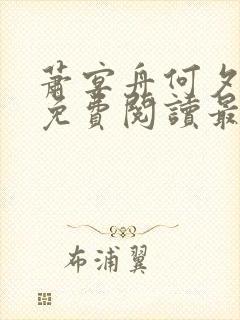 蕭宴舟何夕
免費閱讀最
布浦翼